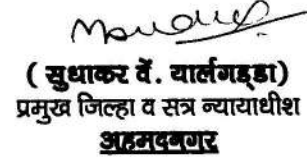 ( सुधाकर वें. यार्लगड्डा)
प्रमुख जिल्हा व सत्र न्यायाधीश
अहमदनगर